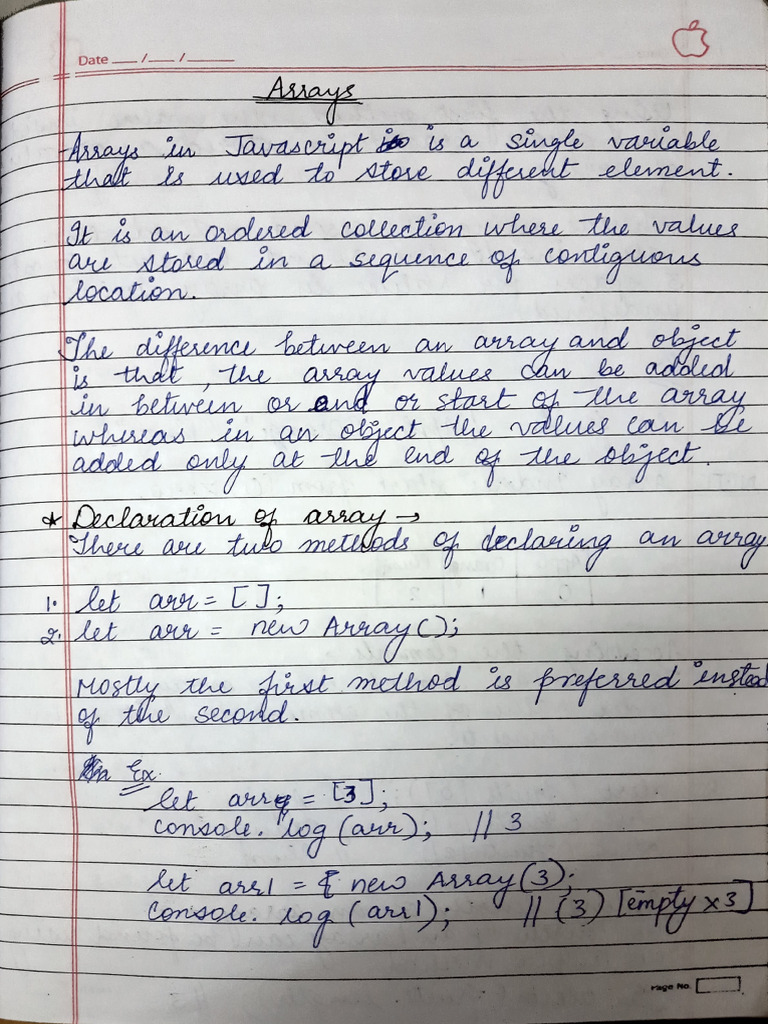 Date __/__/____
Arrays
Arrays in Javascript is a single variable
that is used to store different element.
It is an ordered collection where the values
are stored in a sequence of contiguous
location.
The difference between an array and object
is that, the array values can be added
in between or end or start of the array
whereas in an object the values can be
added only at the end of the object.
* Declaration of array →
There are two methods of declaring an array
1. let arr = [ ];
2. let arr = new Array();
Mostly the first method is preferred instead
of the second.
Ex.
let arr = [3];
console. log (arr); // 3
let arr1 = new Array(3);
console. log (arr1); // (3) [empty x 3]
Page No.